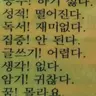 공부! 하기 싫다.
성적! 떨어진다.
독서! 재미없다.
집중! 안 된다.
글쓰기! 어렵다.
생각! 없다.
암기! 귀찮다.
꿈! 몰라요